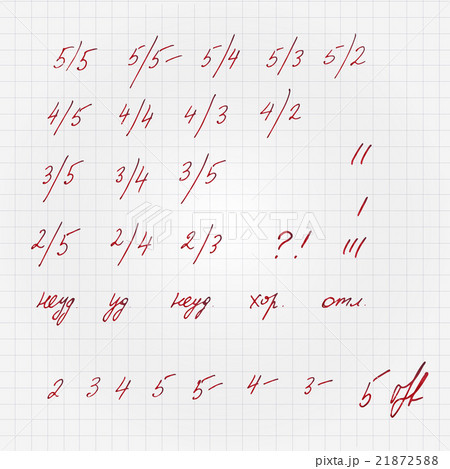 5/5 5/5- 5/4 5/3 5/2
4/5 4/4 4/3 4/2
3/5 3/4 3/5 //
/
2/5 2/4 2/3 ?! ///
неуд уд неуд хор. отл.
2 3 4 5 5- 4- 3- 5
PIXTA
pixta.jp - 21872588